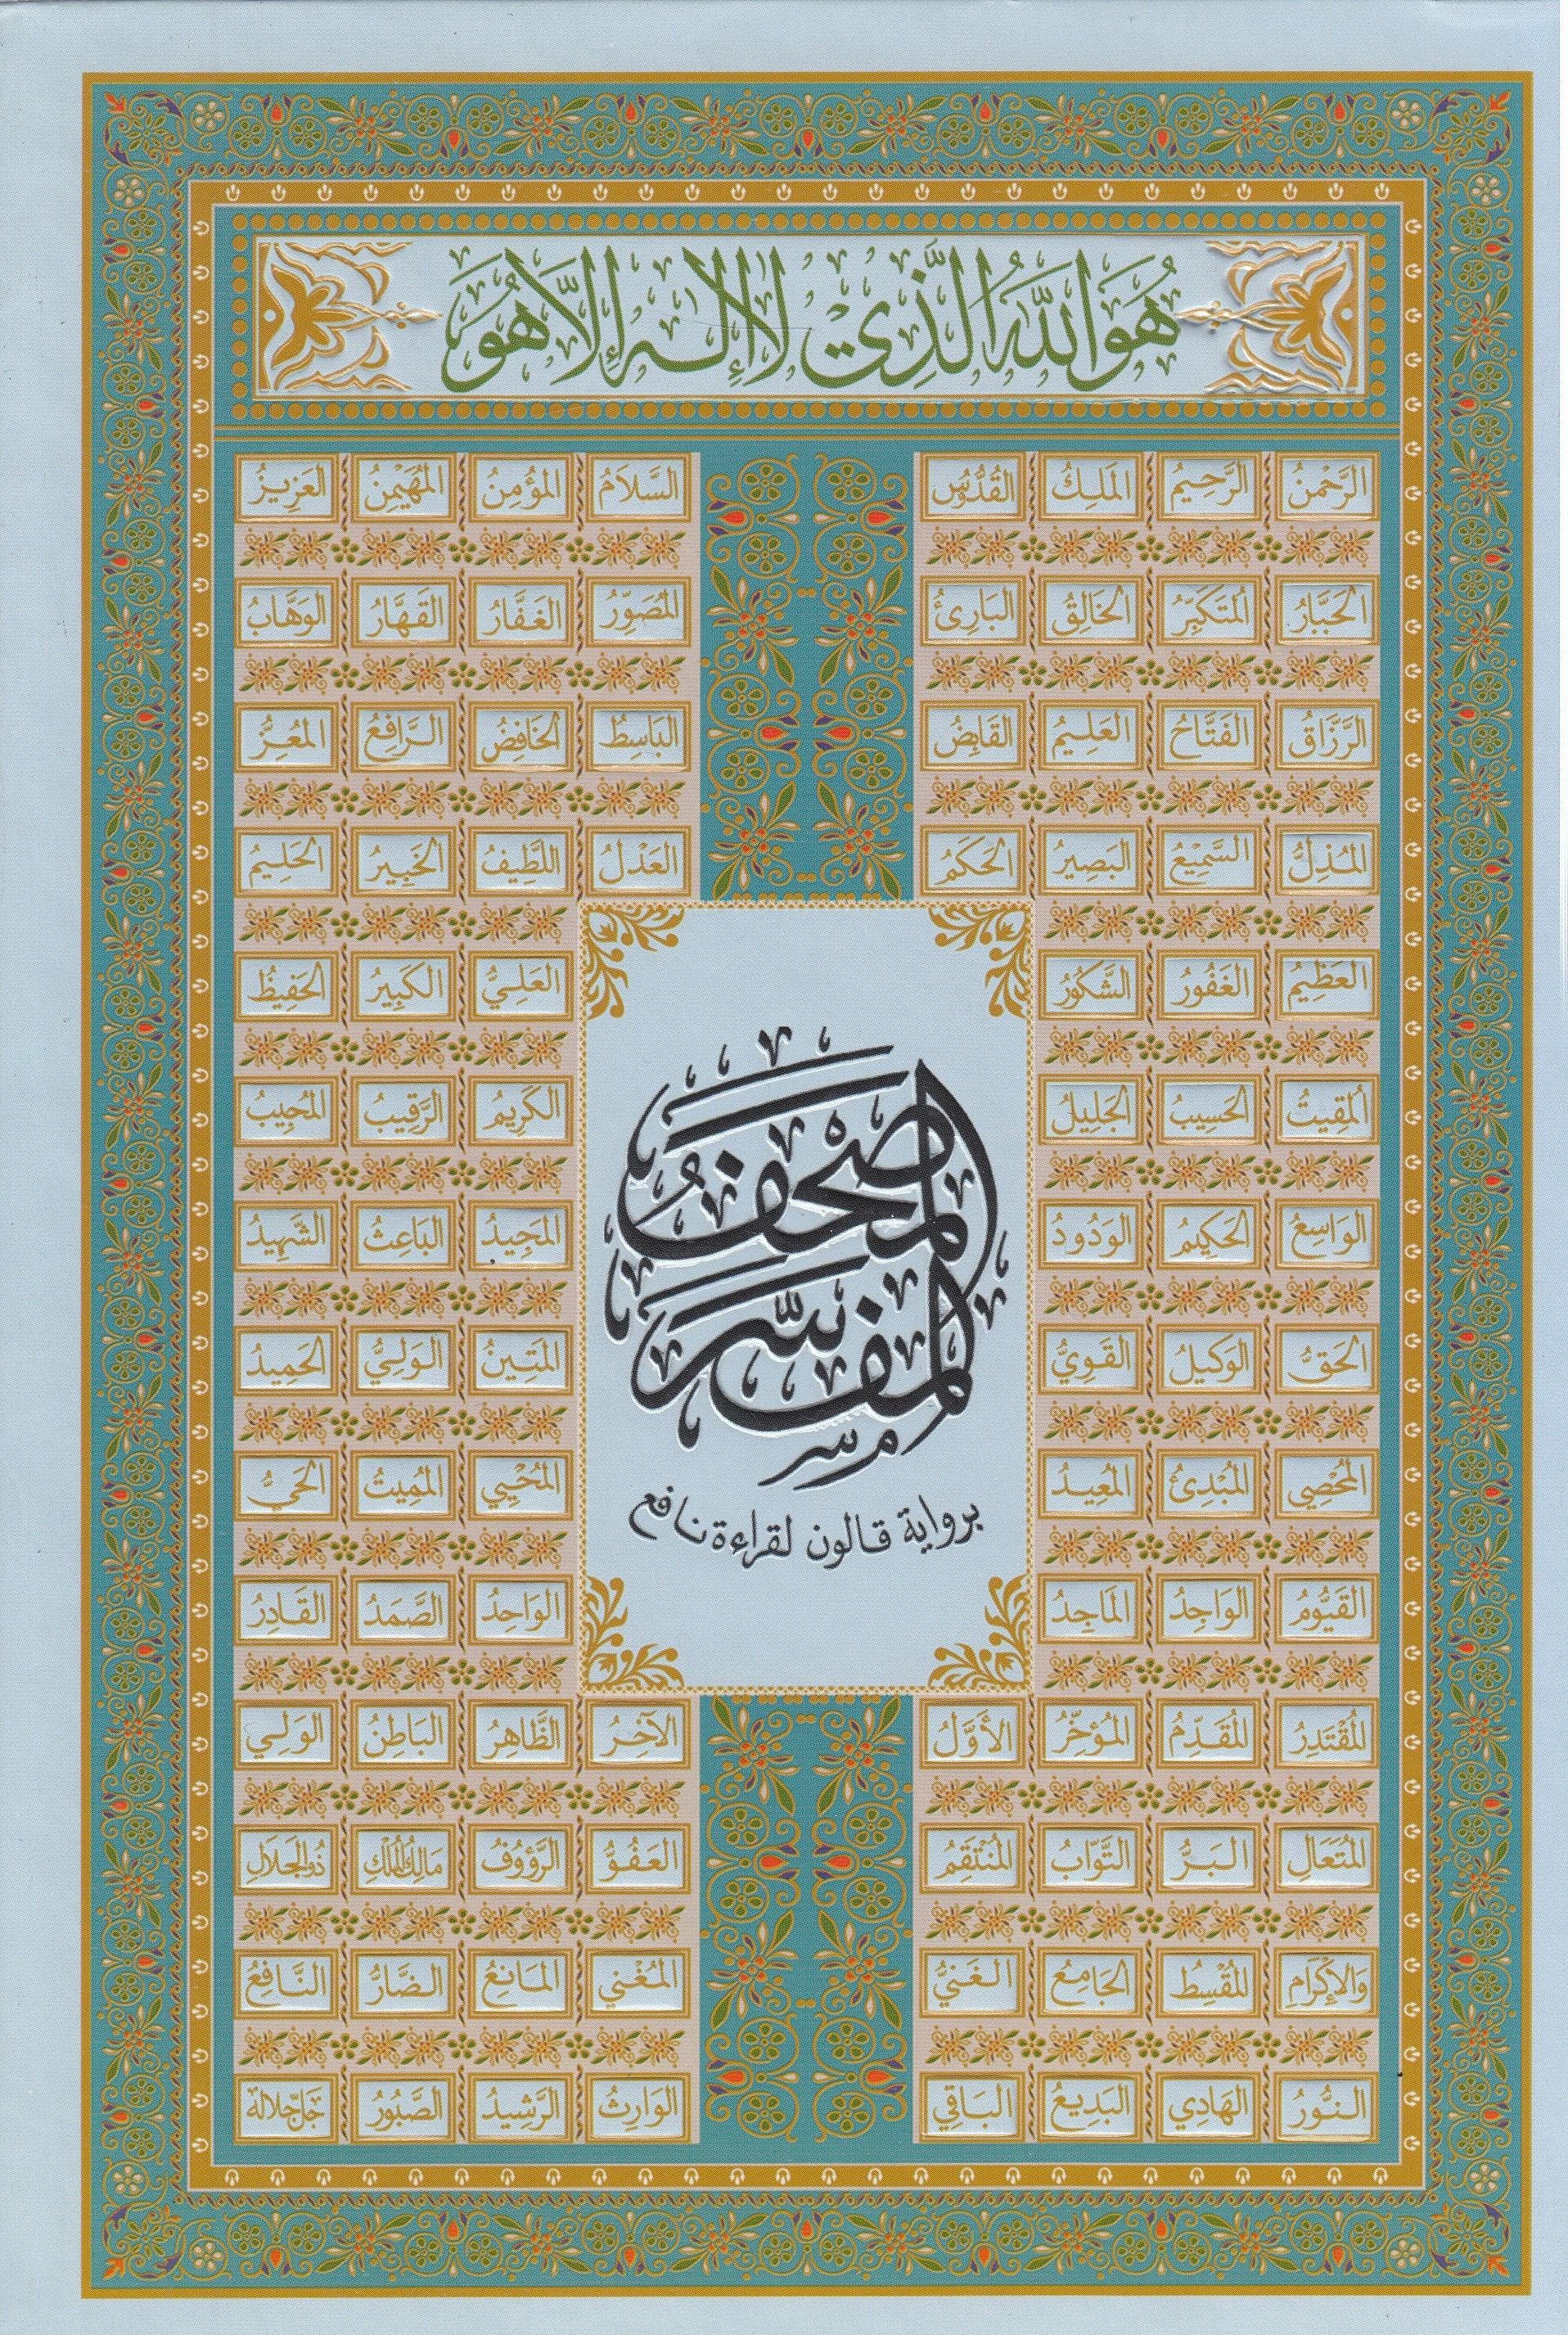 هُوَ اللهُ الَّذِي لَا إِلٰهَ إِلَّا هُوَ
الرَّحْمٰنُ الرَّحِيمُ المَلِكُ القُدُّوسُ السَّلَامُ المُؤْمِنُ المُهَيْمِنُ العَزِيزُ
الجَبَّارُ المُتَكَبِّرُ الخَالِقُ البَارِئُ المُصَوِّرُ الغَفَّارُ القَهَّارُ الوَهَّابُ
الرَّزَّاقُ الفَتَّاحُ العَلِيمُ القَابِضُ البَاسِطُ الخَافِضُ الرَّافِعُ المُعِزُّ
المُذِلُّ السَّمِيْعُ البَصِيرُ الحَكَمُ العَدْلُ اللَّطِيفُ الخَبِيرُ الحَلِيمُ
العَظِيمُ الغَفُورُ الشَّكُورُ العَلِيُّ الكَبِيرُ الحَفِيظُ
المُقِيتُ الحَسِيبُ الجَلِيلُ الكَرِيمُ الرَّقِيبُ المُجِيبُ
الوَاسِعُ الحَكِيمُ الوَدُودُ المَجِيدُ البَاعِثُ الشَّهِيدُ
الحَقُّ الوَكِيلُ القَوِيُّ المَتِينُ الوَلِيُّ الحَمِيدُ
المُحْصِي المُبْدِئُ المُعِيدُ المُحْيِي المُمِيتُ الحَيُّ
القَيُّومُ الوَاجِدُ المَاجِدُ الوَاحِدُ الصَّمَدُ القَادِرُ
المُقْتَدِرُ المُقَدِّمُ المُؤَخِّرُ الأَوَّلُ الآخِرُ الظَّاهِرُ البَاطِنُ الوَلِي
المُتَعَالِ البَرُّ التَّوَّابُ المُنْتَقِمُ العَفُوُّ الرَّؤُوفُ مَالِكُ المُلْكِ ذُو الجَلَالِ
وَالإِكْرَامِ المُقْسِطُ الجَامِعُ الغَنِيُّ المُغْنِي المَانِعُ الضَّارُّ النَّافِعُ
النُّورُ الهَادِي البَدِيعُ البَاقِي الوَارِثُ الرَّشِيدُ الصَّبُورُ جَلَّ جَلَالُهُ
المصحف
المفسر
برواية قالون لقراءة نافع